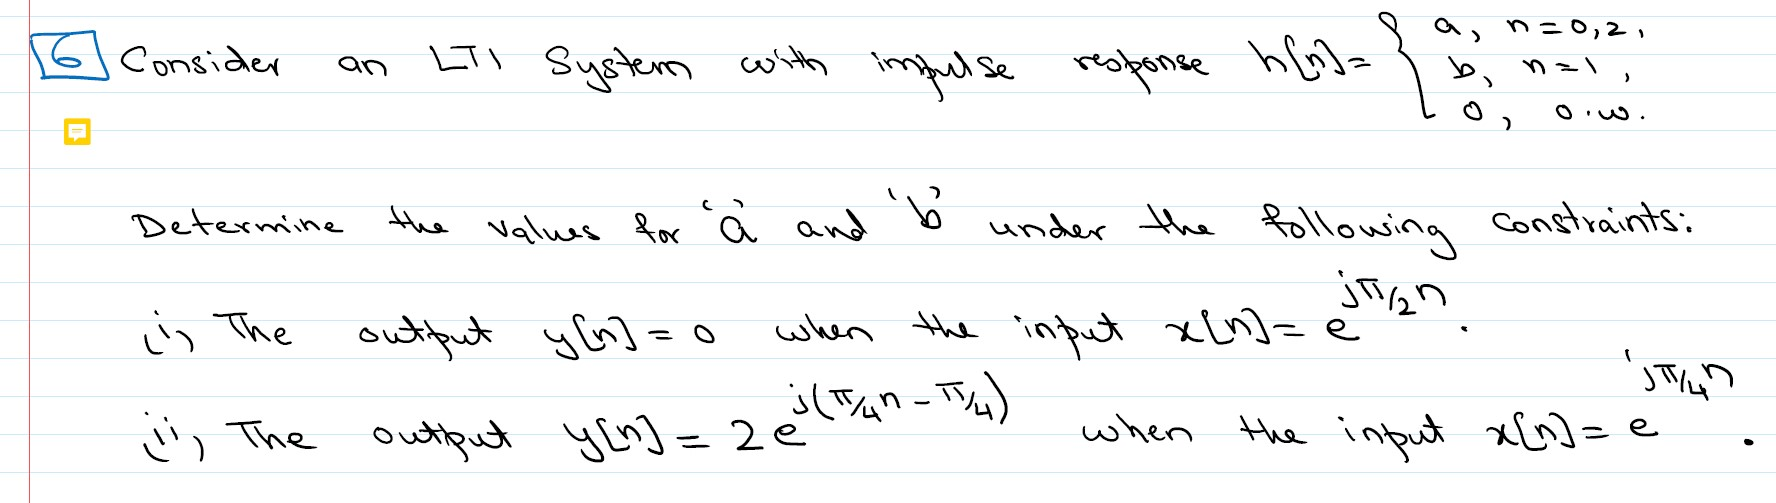 6 Consider an LTI System with impulse response h[n]= { a, n=0,2,
b, n=1,
0, o.w.
Determine the values for 'a' and 'b' under the following constraints:
(i) The output y[n]=0 when the input x[n]= e^{jπ/2 n}.
(ii) The output y[n]=2e^{j(π/4 n - π/4)} when the input x[n]= e^{jπ/4 n}.